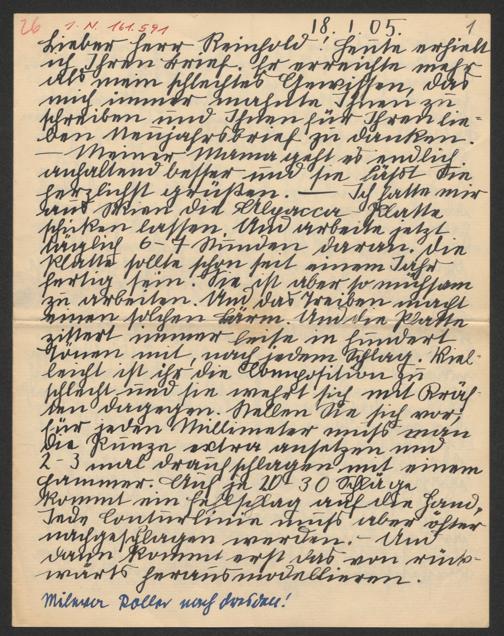 26 I.N. 161.591 18.1.05. 1
Lieber Herr Reinhold! Heute erhielt
ich Ihren Brief. Er erreichte mehr
als mein schlechtes Gewissen, das
mich immer mahnte Ihnen zu
schreiben und Ihnen für Ihren lie-
ben Neujahrsbrief zu danken.
— Meiner Mama geht es endlich
anhaltend besser und sie läßt Sie
herzlichst grüßen. — Ich hatte mir
aus Wien die Alpacca Platte
schicken lassen. Und arbeite jetzt
täglich 6-7 Stunden daran. Die
Platte sollte schon seit einem Jahr
fertig sein. Sie ist aber so mühsam
zu arbeiten. Und das Treiben macht
einen solchen Lärm. Und die Platte
zittert immer leise in hundert
Tönen mit, nach jedem Schlag. Viel-
leicht ist ihr die Composition zu
schlecht und sie wehrt sich mit Kräf-
ten dagegen. Stellen Sie sich vor,
für jeden Millimeter muß man
die Punze extra ansetzen und
2-3 mal drauf schlagen mit einem
Hammer. Auf je 20-30 Schläge
kommt ein Fehlschlag auf die Hand,
Jede Conturlinie muß aber öfter
nachgeschlagen werden. — Und
dann kommt erst das von rück-
wärts herausmodellieren.
Mileva Roller nach Dresden!